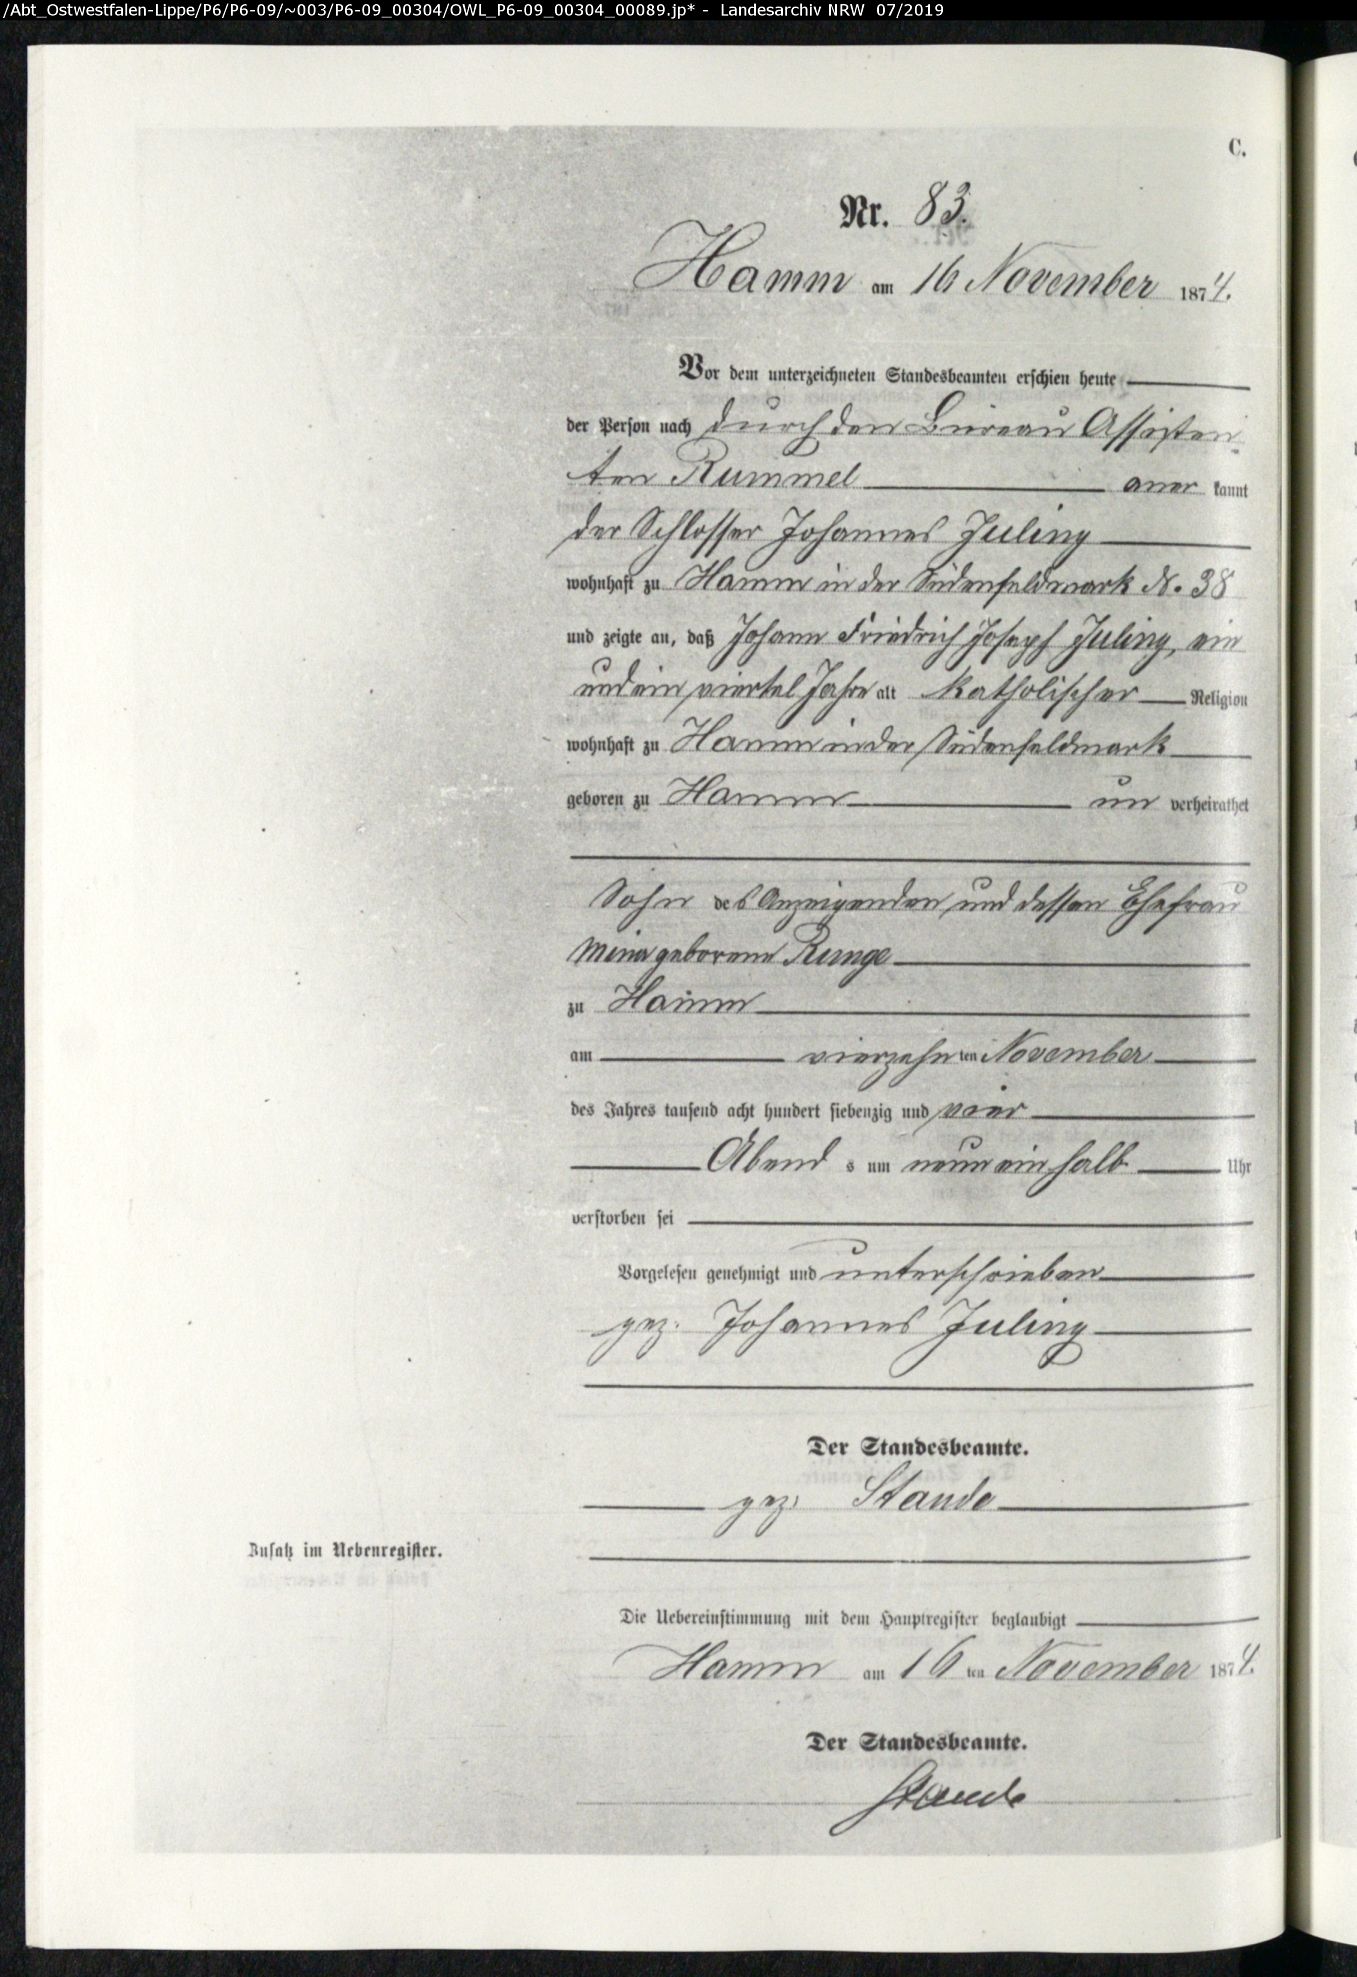 /Abt_Ostwestfalen-Lippe/P6/P6-09/~003/P6-09_00304/OWL_P6-09_00304_00089.jp* - Landesarchiv NRW 07/2019
C.
Nr. 83.
Hamm am 16 November 1874.
Vor dem unterzeichneten Standesbeamten erschien heute
der Person nach durch den Büreau Assisten-
ten Rummel anerkannt
der Schlosser Johannes Juling
wohnhaft zu Hamm in der Südenfeldmark N. 38
und zeigte an, daß Johann Friedrich Joseph Juling, ein
und ein viertel Jahre alt katholischer Religion
wohnhaft zu Hamm in der Südenfeldmark
geboren zu Hamm unverheirathet
Sohn des Anzeigenden und dessen Ehefrau
Mina geborene Runge
zu Hamm
am vierzehnten November
des Jahres tausend acht hundert siebenzig und vier
Abends um neun ein halb Uhr
verstorben sei
Vorgelesen genehmigt und unterschrieben
gez. Johannes Juling
Der Standesbeamte.
gez. Staude
Zusatz im Nebenregister.
Die Uebereinstimmung mit dem Hauptregister beglaubigt
Hamm am 16ten November 1874.
Der Standesbeamte.
Staude